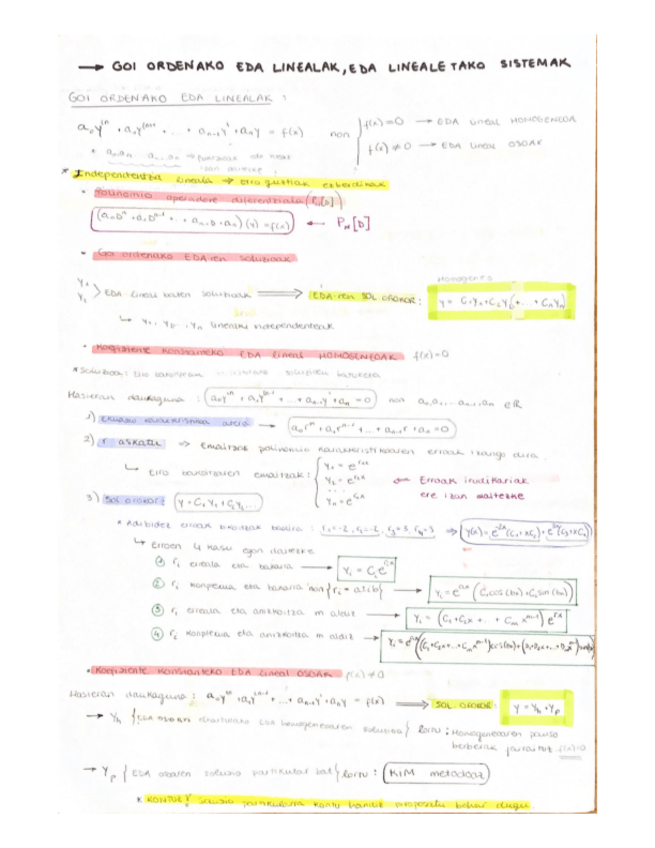 → GOI ORDENAKO EDA LINEALAK, EDA LINEALETAKO SISTEMAK
GOI ORDENAKO EDA LINEALAK :
a₀yⁿ + a₁yⁿ⁻¹ + ... + aₙ₋₁y' + aₙy = f(x) non
f(x)=0 → EDA lineal HOMOGENEOA
f(x)≠0 → EDA lineal OSOAK
* Independentzia lineala → erro guztiak ezberdinak
• Polinomio operadore diferentziala (Pₙ[D])
(a₀Dⁿ + a₁Dⁿ⁻¹ + ... + aₙ₋₁D + aₙ)(y) = f(x) ← Pₙ[D]
• Goi ordenako EDA-ren soluzioak
y₁
y₂ > EDA lineal baten soluzioak ⟹ EDA-ren SOL. OROKOR :
Homogeneo
y = C₁y₁+C₂y₂+...+Cₙyₙ
↳ y₁, y₂ ... yₙ linealki independenteak
• Koefiziente konstanteko EDA lineal HOMOGENEOAK f(x)=0
Hasieran daukaguna : a₀yⁿ + a₁yⁿ⁻¹ + ... + aₙ₋₁y' + aₙ = 0 non a₀, a₁, ... aₙ₋₁, aₙ ∈ ℝ
1) Ekuazio karakteristikoa atera → a₀rⁿ + a₁rⁿ⁻¹ + ... + aₙ₋₁r + aₙ = 0
2) r askatu ⇒ Emaitzak polinomio karakteristikoaren erroak izango dira.
↳ Erro bakoitzaren emaitzak :
y₁ = e^r₁x
y₂ = e^r₂x
...
yₙ = e^rₙx
Erroak irudikariak
ere izan daitezke
3) Sol orokor : y = C₁y₁ + C₂y₂...
* Adibidez erroak hauek badira : r₁=-2, r₂=-2, r₃=3, r₄=3 ⇒ y(x) = e^-2x (C₁+xC₂) + e^3x (C₃+xC₄)
↳ Erroen 4 kasu egon daitezke
① rᵢ erreala eta bakarra → yᵢ = Cᵢe^rᵢx
② rᵢ konplexua eta bakarra non {rᵢ = a±ib} → yᵢ = e^ax (C₁cos(bx)+C₂sin(bx))
③ rᵢ erreala eta anizkoitza m aldiz → yᵢ = (C₁+C₂x+...+Cₘx^m-1) e^rx
④ rᵢ konplexua eta anizkoitza m aldiz → yᵢ = e^ax ((C₁+C₂x+...+Cₘx^m-1)cos(bx)+(D₁+D₂x+...+Dₘx^m-1)sin(bx))
• Koefiziente konstanteko EDA lineal OSOAK f(x)≠0
Hasieran daukaguna : a₀yⁿ + a₁yⁿ⁻¹ + ... + aₙ₋₁y' + aₙy = f(x) ⟹ SOL. OROKOR : y = yₕ + yₚ
→ yₕ {EDA osoari elkartutako EDA homogeneoaren soluzioa} lortu : Homogeneoaren pauso
berberak jarraituz f(x)=0
→ yₚ {EDA osoaren soluzio partikular bat} lortu : KIM metodoaz
* KONTUZ! soluzio partikularra kontu handiz proposatu behar dugu.